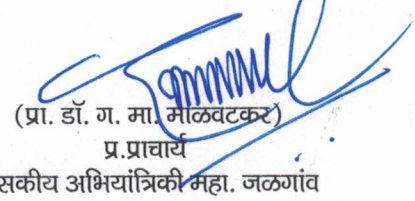 (प्रा. डॉ. ग. मा. माळवटकर)
प्र.प्राचार्य
सकीय अभियांत्रिकी महा. जळगांव